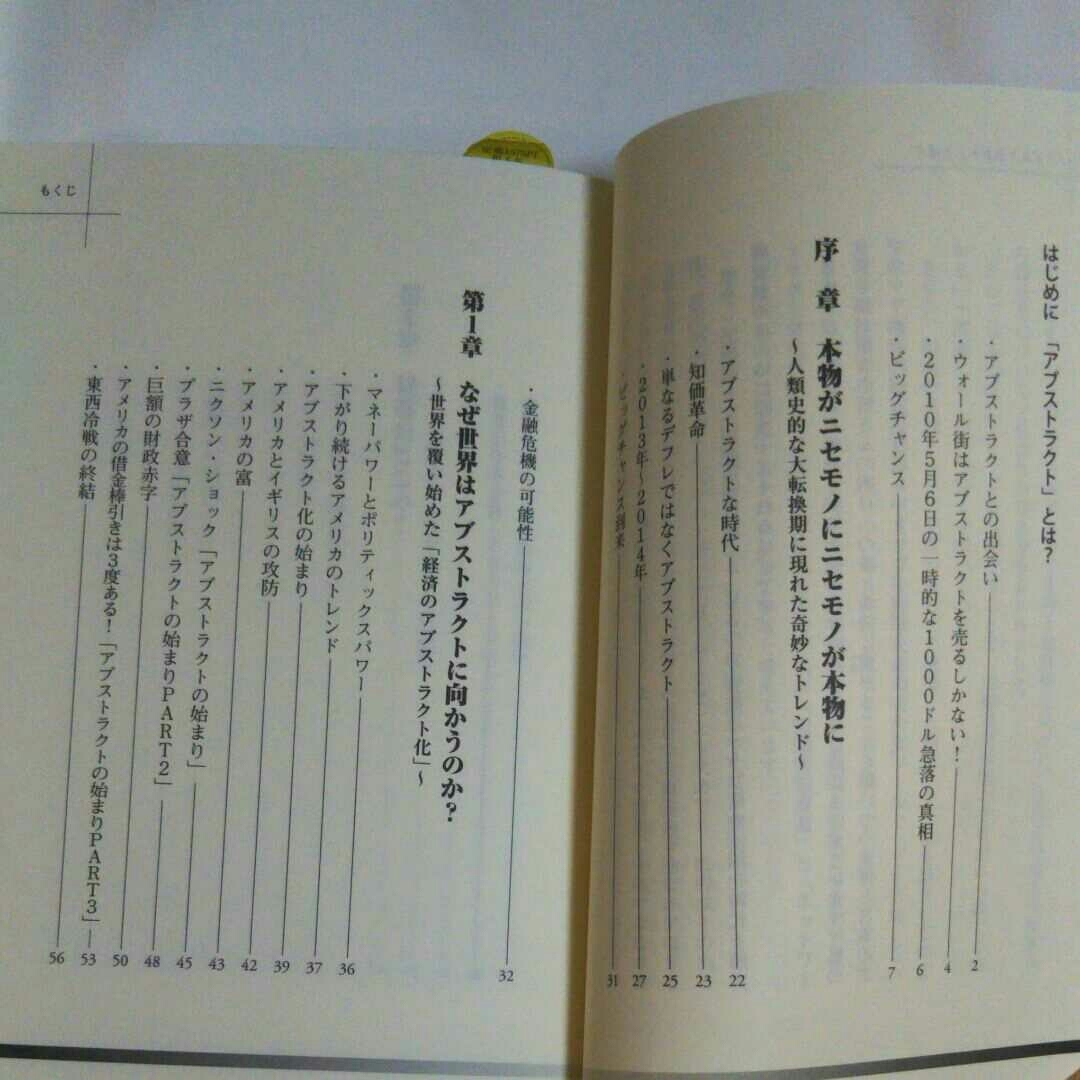 はじめに 「アブストラクト」とは?
・アブストラクトとの出会い 2
・ウォール街はアブストラクトを売るしかない! 4
・2010年5月6日の一時的な1000ドル急落の真相 6
・ビッグチャンス 7
序 章 本物がニセモノにニセモノが本物に
～人類史的な大転換期に現れた奇妙なトレンド～
・アブストラクトな時代 22
・知価革命 23
・単なるデフレではなくアブストラクト 25
・2013年～2014年 27
・ビッグチャンス到来 31
もくじ
・金融危機の可能性 32
第1章 なぜ世界はアブストラクトに向かうのか?
～世界を覆い始めた「経済のアブストラクト化」～
・マネーパワーとポリティックスパワー 36
・下がり続けるアメリカのトレンド 37
・アブストラクト化の始まり 39
・アメリカとイギリスの攻防 42
・アメリカの富 43
・ニクソン・ショック「アブストラクトの始まり」 45
・プラザ合意「アブストラクトの始まりPART2」 48
・巨額の財政赤字 50
・アメリカの借金棒引きは3度ある!「アブストラクトの始まりPART3」 53
・東西冷戦の終結 56